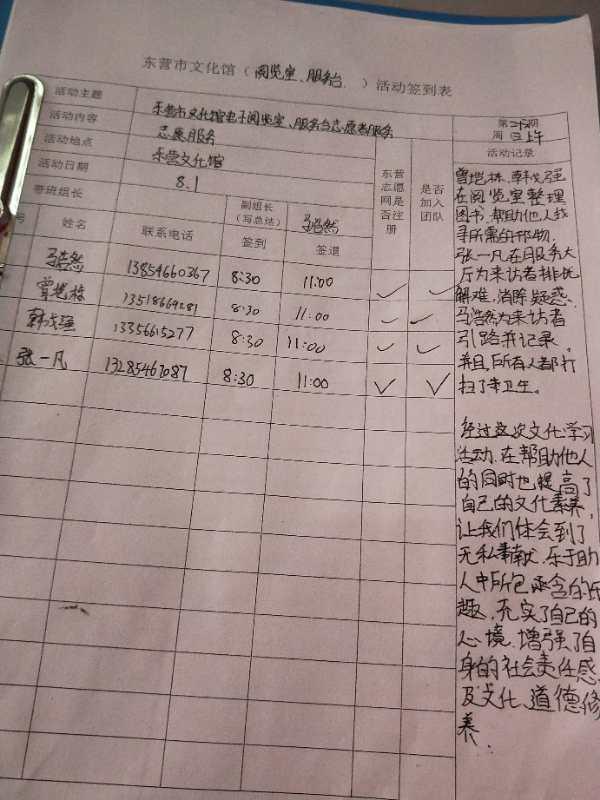 东营市文化馆（阅览室、服务台、）活动签到表
活动主题 东营市文化馆电子阅览室、服务台志愿者服务
活动内容 志愿服务
活动地点 东营文化馆
活动日期 8.1
带班组长 副组长（写总结） 马浩然
号 姓名 联系电话 签到 签退 东营志愿网是否注册 是否加入团队
马浩然 13854660367 8:30 11:00 ✓ ✓
曾挹栋 13518669281 8:30 11:00 ✓ ✓
韩戈强 13356615277 8:30 11:00 ✓ ✓
张一凡 13285467087 8:30 11:00 ✓ ✓
周三上午
活动记录
韩戈强
在阅览室整理
图书，帮助他人找
寻所需的书物，
张一凡在服务大
厅为来访者排忧
解难，消除疑惑，
马浩然为来访者
引路并记录，
并且，所有人都打
扫了卫生。
经过这次文化学习
活动，在帮助他人
的同时也提高了
自己的文化素养，
让我们体会到了
无私奉献、乐于助
人中所包含的乐
趣，充实了自己的
心境，增强了自
身的社会责任感，
及文化、道德修
养、